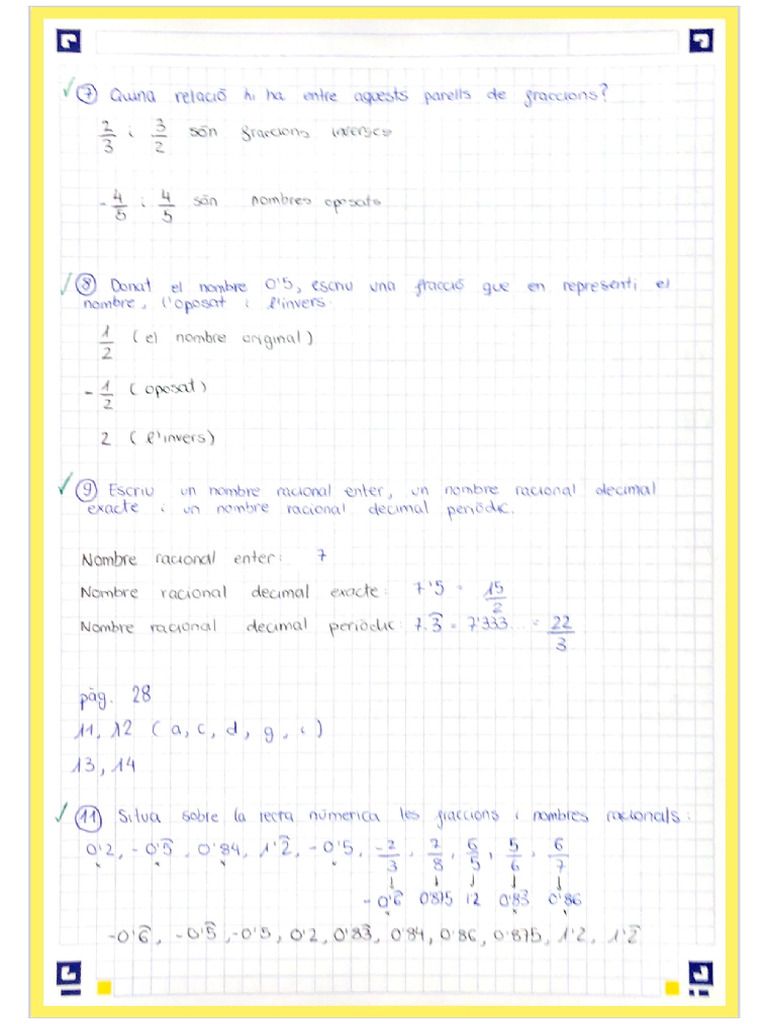 ✓ 7 Quina relació hi ha entre aquests parells de fraccions?
2/3 i 3/2 són fraccions inverses
-4/5 i 4/5 són nombres oposats
✓ 8 Donat el nombre 0'5, escriu una fracció que en representi el
nombre, l'oposat i l'invers.
1/2 (el nombre original)
-1/2 (oposat)
2 (l'invers)
✓ 9 Escriu un nombre racional enter, un nombre racional decimal
exacte i un nombre racional decimal periòdic.
Nombre racional enter: 7
Nombre racional decimal exacte: 7'5 = 15/2
Nombre racional decimal periòdic: 7.3̂ = 7'333... = 22/3
pàg. 28
11, 12 (a, c, d, g, i)
13, 14
✓ 11 Situa sobre la recta númerica les fraccions i nombres racionals:
0'2, -0'5̂, 0'84, 1'2̂, -0'5, -2/3, 7/8, 6/5, 5/6, 6/7
↓ ↓ ↓ ↓ ↓
-0'6̂ 0'875 12 0'83̂ 0'86
-0'6̂, -0'5̂, -0'5, 0'2, 0'83̂, 0'84, 0'86, 0'875, 1'2, 1'2̂